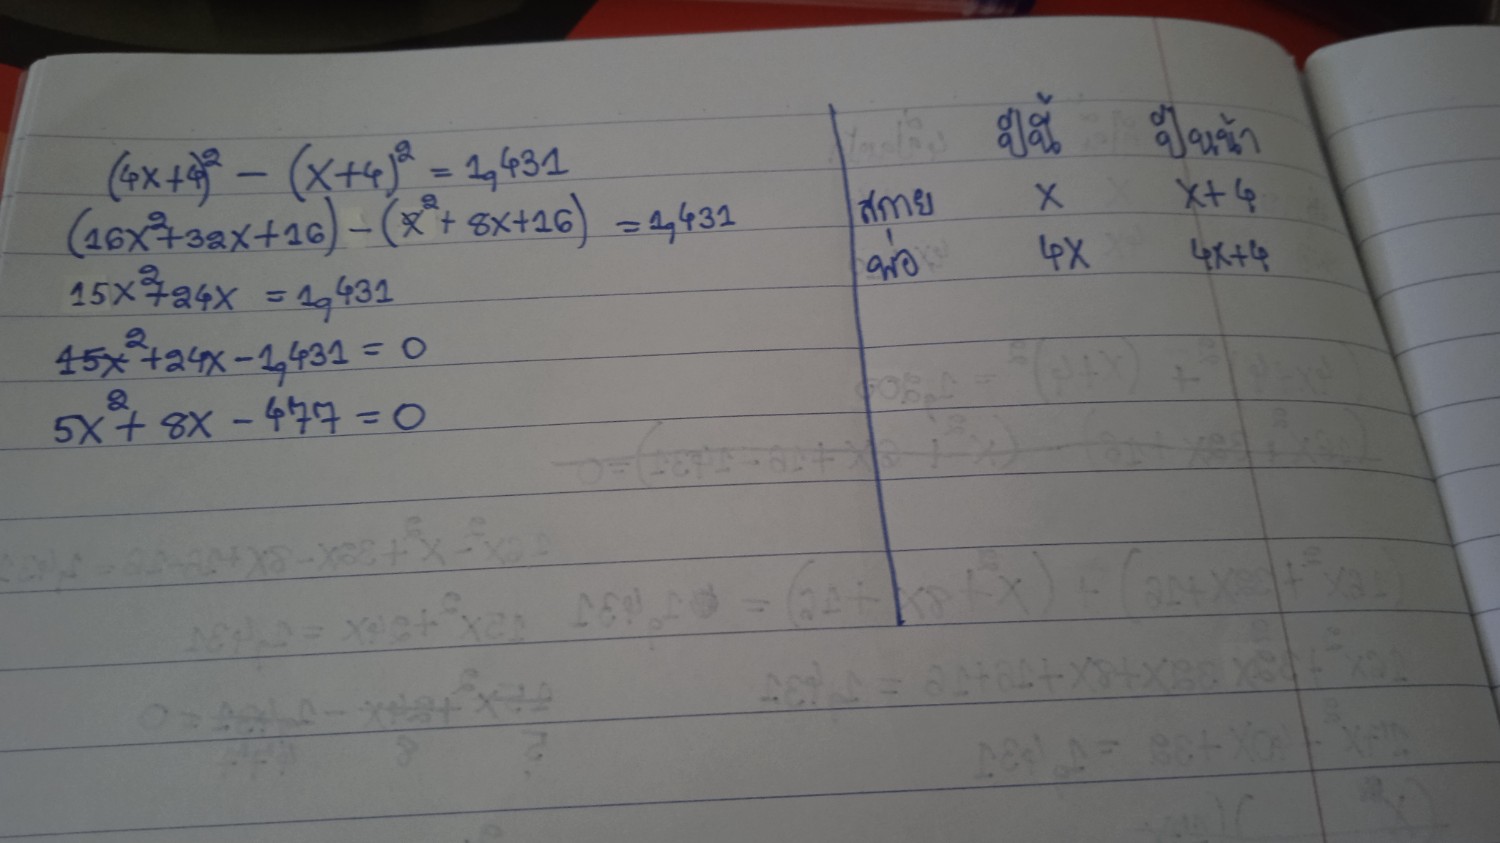 (4x+4)² - (x+4)² = 1,431
(16x²+32x+16) - (x²+8x+16) = 1,431
15x²+24x = 1,431
15x²+24x-1,431 = 0
5x²+8x-477 = 0
ปีนี้ ปีหน้า
สกาย x x+4
พ่อ 4x 4x+4